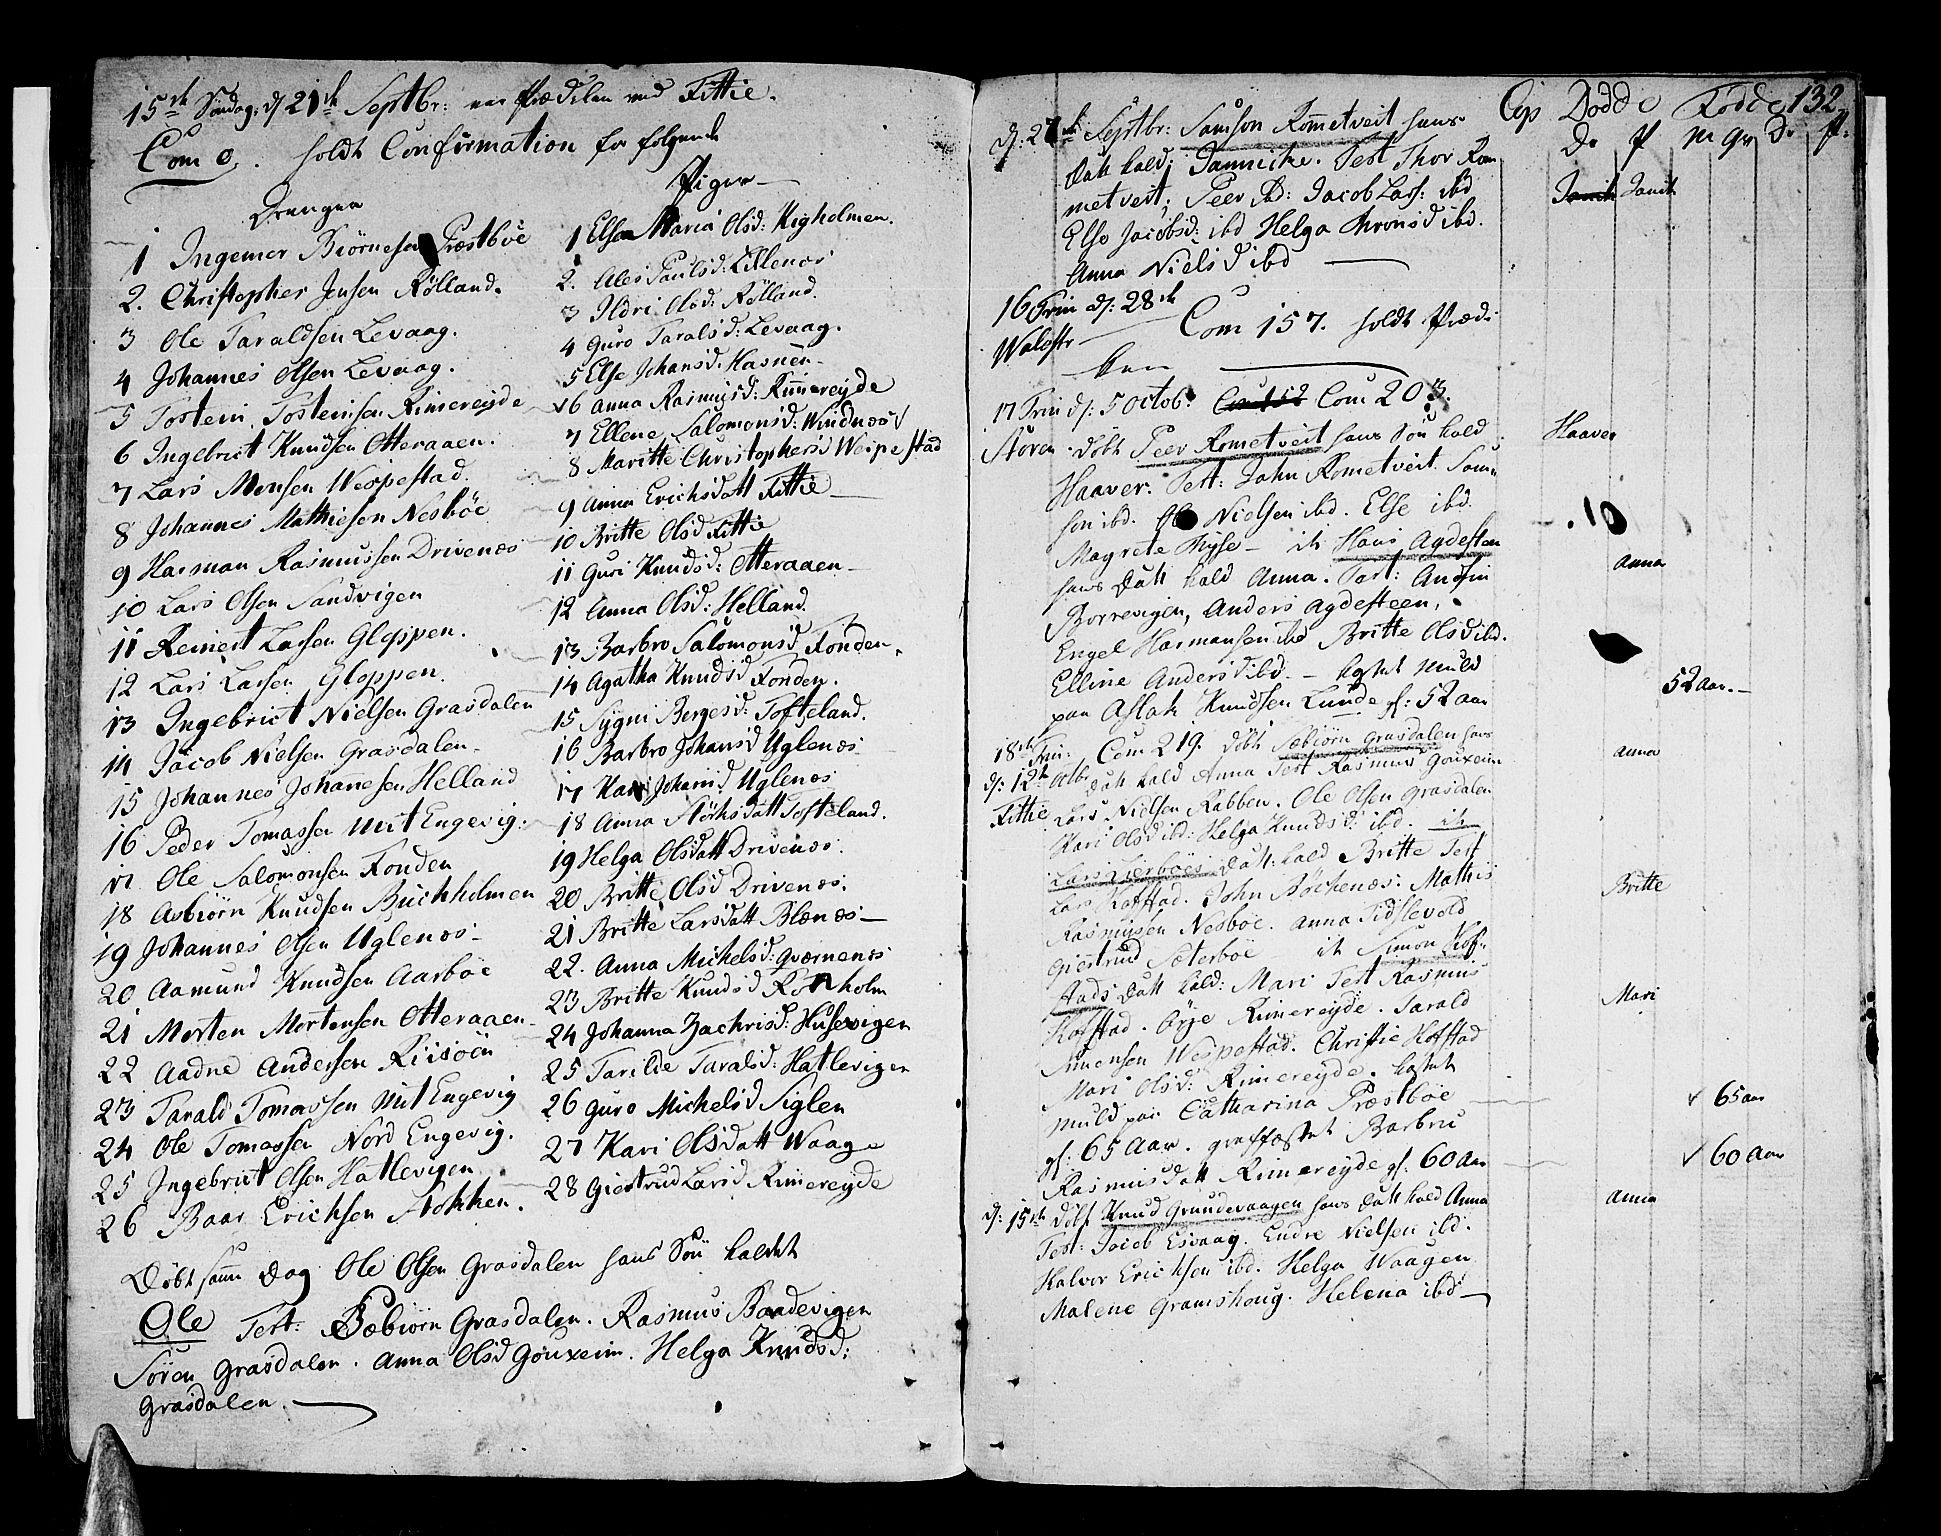 15de Søndag: d 21de Septbr: var Prædiken ved Fittie.
Com 0. holdt Confirmation for følgende
Drenger
1 Ingemer Biørnesen Præstbøe
2. Christopher Jensen Rølland.
3 Ole Taraldsen Levaag.
4 Johannes Olsen Levaag.
5 Tostein Tosteinsen Rimereyde
6 Ingebrict Knudsen Otteraaen.
7 Lars Monsen Wespestad.
8 Johannes Mathiesen Nesbøe
9 Harman Rasmussen Drivenæs
10 Lars Olsen Sandvigen
11 Reinert Larsen Gloppen.
12 Lars Larsen Gloppen.
13 Ingebrict Nielsen Grasdalen
14 Jacob Nielsen Grasdalen
15 Johannes Johannesen Helland
16 Peder Tomassen Mit Engevig.
17 Ole Salomonsen Fonden
18 Asbiørn Knudsen Buchholmen
19 Johannes Olsen Uglenæs
20 Aamund Knudsen Aarbøe
21 Morten Mortensen Otteraaen
22 Aadne Andersen Riisøen
23 Tarald Tomassen Mit Engevig
24 Ole Tomassen Nord Engevig.
25 Ingebrict Olsen Hatlevigen
26 Baar Erichsen Stokken.
Piger
1 Elsa Maria Olsd: Kigholmen.
2. Ales Paulsd: Lillenæs
3 Ildri Olsd: Rølland.
4 Guro Taralsd: Levaag.
5 Else Johansd: Hasnen
6 Anna Rasmusd: Rimereyde
7 Ellene Salomonsd: Windnæs
8 Maritte Christophersd Wespestad
9 Anna Erichsdatt Fittie
10 Britte Olsd Fittie
11 Guri Knudsd: Otteraaen
12 Anna Olsd: Helland.
13 Barbro Salomonsd Fonden.
14 Agatha Knudsd Fonden.
15 Sygni Bergesd: Tofteland.
16 Barbro Johansd Uglenæs
17 Kari Johansd Uglenæs
18 Anna Størksdatt Tofteland.
19 Helga Olsdatt Drivenæs.
20 Britte Olsd Drivenæs.
21 Britte Larsdatt Blænæs
22. Anna Michelsd: Qværnenæs
23 Britte Knudsd Rønholm
24 Johanna Zachrisd: Husevigen
25 Tarilde Taralsd: Hatlevigen
26 Guro Michelsd Siglen
27 Kari Olsdatt Waage
28 Giertrud Larsd Rimereyde
Døbt samme Dag Ole Olsen Grasdalen hans Søn kaldet
Ole Test: Sæbiørn Grasdalen. Rasmus Baadevigen
Søren Grasdalen. Anna Olsd Gouxeim. Helga Knudsd:
Grasdalen.
Cop Dødde Fødde 132
D. P M Qv D. P.
d: 27de Septbr: Samson Rometveit hans
Datt kald: Jannicke. Test Thor Rom
metveit; Peer ib: Jacob Lars: ibd
Else Jacobsd: ibd Helga Thronsd ibd.
Anna Nielsd ibd
16 Trin d: 28de Com 157. holdt Prædi
Walestr
ken
17 Trin d: 5 Octob: Com 203.
Støren. døbt Peer Rometveit hans Søn kald
Haaver
Haaver. Test: John Rometveit. Sam
son ibd. Ole Nielsen ibd. Else ibd.
10
Magrete Thyse it Hans Agdesteen
hans Datt kald Anna. Test:
Anna
Borrevigen, Anders Agdesteen,
Engel Harmansen ibd Britte Olsd ibd.
Elline Andersd ibd. kastet Muld
paa Aslak Knudsen Lunde gl: 52 aar
52 aar.
18de Trin: Com 219. døbt Sæbiørn Grasdalen hans
d: 12te Octbr Datt kald Anna Test Rasmus Gouxeim
Anna
Fittie Lars Nielsen Rabben. Ole Olsen Grasdalen
Kari Olsd ibd: Helga Knudsd: ibd. it
Datt: kald Britte Test
Britte
Lars Hofstad. John Böckenæs. Mathis
Rasmusen Nesbøe. Anna Tidslevold
Giertrud Sæterbøe it Simon Hof
stads Datt kald: Mari Test Rasmus
Mari
Hofstad. Rimereyde. Tarald
Simensen Wespestad. Christie Hofstad
Mari Olsd: Rimereyde. kastet
Muld paa Catharina Præstbøe
65 aar
gl: 65 aar. graffæstet Barbru
Rasmusdatt Rimereyde gl: 60 aar
60 aar
d: 15de døbt Knud Grundevaagen hans Datt kald Anna
Anna
Test: Jacob Esvaag. Endre Nielsen ibd.
Halvor Erichsen ibd. Helga Waagen
Malene Gramshoug. Helena ibd